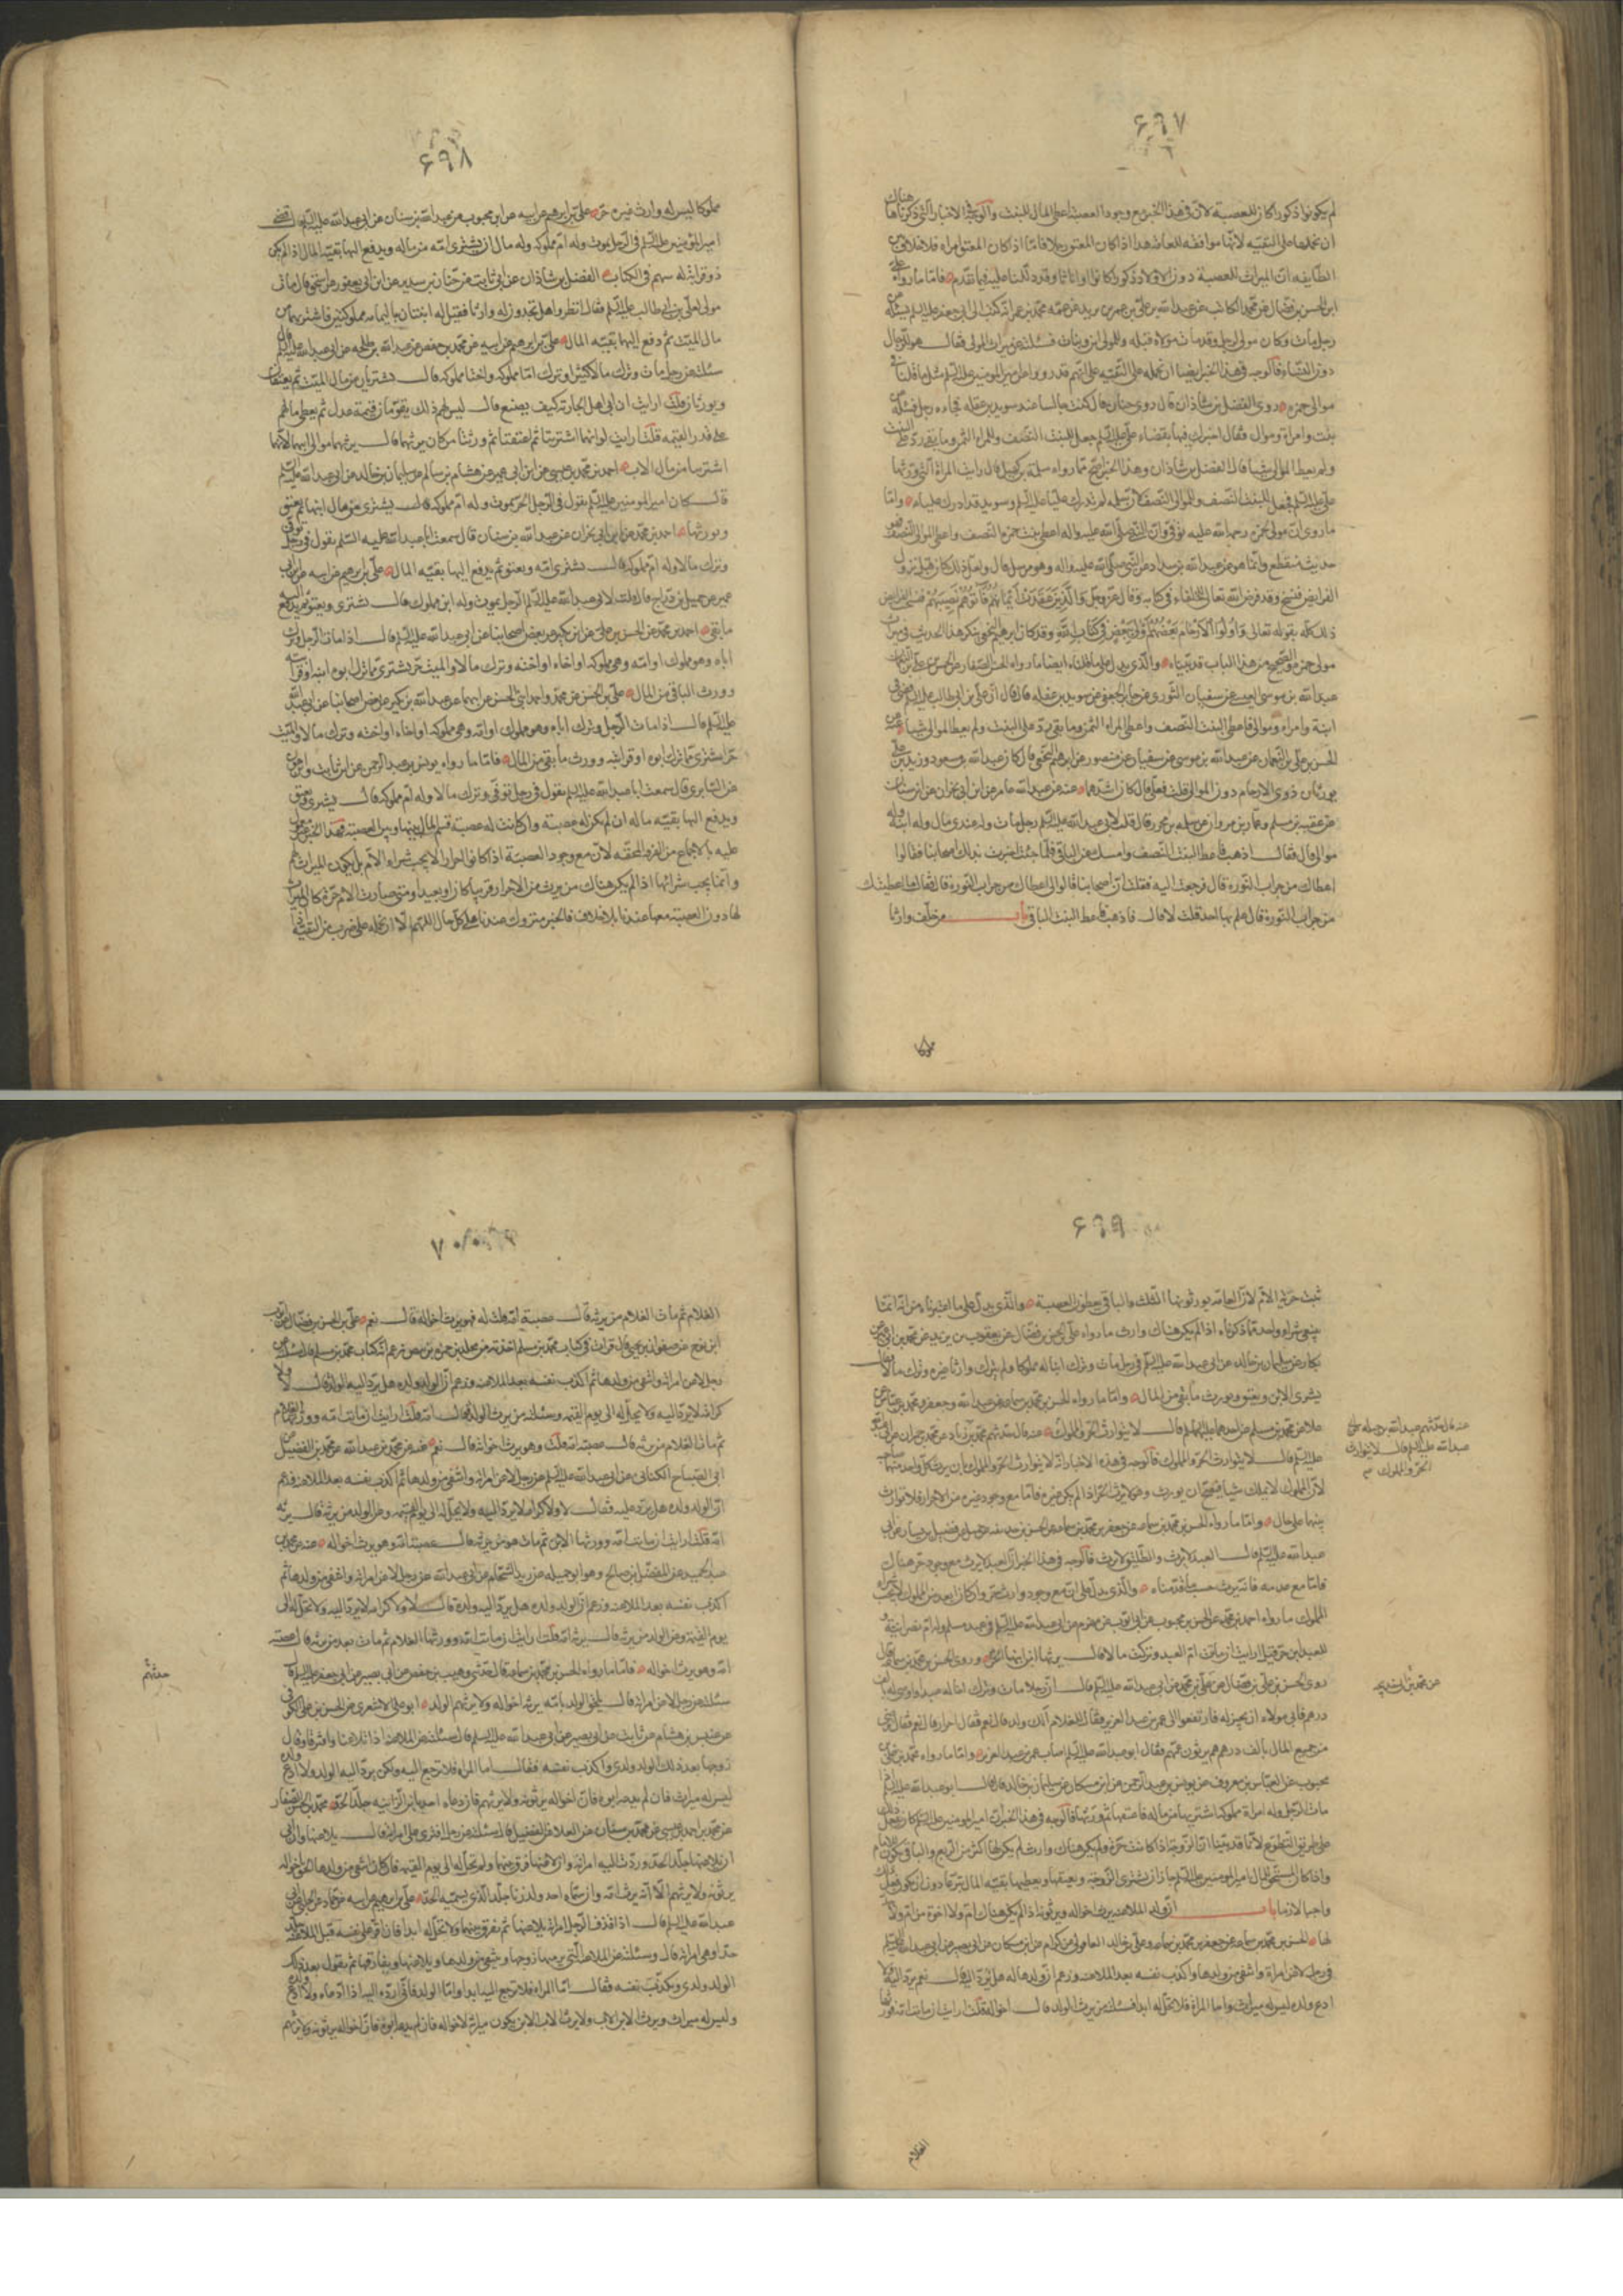 ۶۹۷
لم يكونوا ذكورا كان للعصبة لان في هذا الخبر مع وجود العصبة اعطى المال للبنت والوجه في الاخبار التي ذكرناها هناك
ان نحملها على التقية لانها موافقة للعامة هذا اذا كان المعتق رجلا فاما اذا كان المعتق امراة فلا خلاف بين
الطايفة ان الميراث للعصبة دون الاولاد ذكورا كانوا او اناثا وقد دللنا عليه فيما تقدم فاما ما رواه علي
ابن الحسن بن فضال عن محمد الكاتب عن عبد الله بن علي بن عمر بن يزيد عن عمه محمد بن عمر انه كتب الى ابي جعفر عليه السلم يسئله عن
رجل مات وكان مولى لرجل وقد مات مولاه قبله وللمولى ابن وبنات فسئلته عن ميراث المولى فقال هو للرجال
دون النساء فالوجه في هذا الخبر ايضا ان نحمله على التقية على انهم قد رووا عن امير المومنين عليه السلم مثل ما قلناه في
مولى حمزة روى الفضل بن شاذان قال روى حنان قال كنت جالسا عند سويد بن غفلة فجاءه رجل فسئله عن
بنت وامراة وموال فقال اخبرك فيها بقضاء علي عليه السلم جعل للبنت النصف وللمراة الثمن وما بقي رد على البنت
ولم يعط الموالي شيئا قال الفضل بن شاذان وهذا الخبر اصح مما رواه سلمة بن كهيل قال رايت المراة التي ورثها
علي عليه السلم فجعل للبنت النصف وللموالي النصف لان سلمة لم يدرك عليا عليه السلم وسويد قد ادرك عليا واما
ما روي ان مولى لحمزة رحمه الله عليه توفي وان النبي صلى الله عليه واله اعطى بنت حمزة النصف واعطى الموالي النصف فهو
حديث منقطع وانما هو عن عبد الله بن شداد عن النبي صلى الله عليه واله وهو مرسل قال ولعل ذلك كان قبل نزول
الفرايض فنسخ وقد فرض الله تعالى للحلفاء في كتابه وقال عز وجل والذين عقدت ايمانكم فاتوهم نصيبهم فنسخت الفرايض
ذلك كله بقوله تعالى واولوا الارحام بعضهم اولى ببعض في كتاب الله وقد كان ابرهيم النخعي ينكر هذا الحديث في ميراث
مولى حمزة والصحيح من هذا الباب قد بيناه والذي يدل على ما قلناه ايضا ما رواه
عبد الله بن موسى العبسي عن سفيان الثوري عن جابر الجعفي عن سويد بن غفلة قال قال ان علي بن ابي طالب عليه السلم قضى في
ابنة وامراة وموالي فاعطى البنت النصف واعطى المراة الثمن وما بقي رد على البنت ولم يعط الموالي شيئا عنه عن
الحسن بن علي بن النعمان عن عبد الله بن موسى عن سفيان عن منصور عن ابرهيم النخعي قال كان عبد الله بن مسعود وزيد بن علي
يورثان ذوي الارحام دون الموالي قلت فعلي قال كان اشدهما عنه عن عبد الله بن عامر عن ابن ابي نجران عن ابن سنان
عن عقبة بن مسلم وعمار بن مروان عن سلمة بن محرز قال قلت لابي عبد الله عليه السلم رجل مات وله عندي مال وله ابنة وله
موالي قال فقال اذهب فاعط البنت النصف وامسك عن الباقي فلما جئت اخبرت بذلك اصحابنا فقالوا
اعطاك من جراب النورة قال فرجعت اليه فقلت ان اصحابنا قالوا لي اعطاك من جراب النورة قال فقال ما اعطيتك
من جراب النورة قال علم بها احد قلت لا قال فاذهب فاعط البنت الباقي باب من خلف وارثا
مملوكا
۶۹۸
مملوكا ليس له وارث غيره حر علي بن ابرهيم عن ابيه عن ابن محبوب عن عبد الله بن سنان عن ابي عبد الله عليه السلم قال قضى
امير المومنين عليه السلم في الرجل يموت وله ام مملوكة وله مال ان تشترى امه من ماله ويدفع اليها بقية المال اذا لم يكن
ذو قرابة له سهم في الكتاب الفضل بن شاذان عن ابي ثابت عن حنان بن سدير عن ابن ابي يعفور عن اسحق قال مات
مولى لعلي بن ابي طالب عليه السلم فقال انظروا هل تجدون له وارثا فقيل له ابنتان باليمامة مملوكتين فاشتراهما من
مال الميت ثم دفع اليهما بقية المال علي بن ابرهيم عن ابيه عن محمد بن جعفر عن عبد الله بن طلحة عن ابي عبد الله عليه السلم قال
سئلته عن رجل مات وترك مالا كثيرا وترك اما مملوكة واختا مملوكة قال تشتريان من مال الميت ثم يعتقان
ويورثان قلت ارايت ان ابى اهل الجارية كيف يصنع قال ليس لهم ذلك يقومان قيمة عدل ثم يعطى مالهم
على قدر القيمة قلت ارايت لو انهما اشتريتا ثم اعتقتا ثم ورثتا من كان يرثهما قال يرثهما موالي ابيهما لانهما
اشتريتا من مال الاب احمد بن محمد بن عيسى عن ابن ابي عمير عن هشام بن سالم عن سليمان بن خالد عن ابي عبد الله عليه السلم
قال كان امير المومنين عليه السلم يقول في الرجل الحر يموت وله ام مملوكة قال يشترى من مال ابنها ثم تعتق
ويورثها احمد بن محمد عن ابن ابي نجران عن عبد الله بن سنان قال سمعت ابا عبد الله عليه السلم يقول في رجل توفي
وترك مالا وله ام مملوكة قال تشترى امه وتعتق ثم يدفع اليها بقية المال علي بن ابرهيم عن ابيه عن ابن ابي
عمير عن جميل بن دراج قال قلت لابي عبد الله عليه السلم الرجل يموت وله ابن مملوك قال يشترى ويعتق ثم يدفع اليه
ما بقي احمد بن محمد عن الحسن بن علي عن ابن بكير عن بعض اصحابنا عن ابي عبد الله عليه السلم قال اذا مات الرجل وترك
اباه وهو مملوك او امه وهي مملوكة او اخاه او اخته وترك مالا والميت حر يشترى مما ترك ابوه او قرابته
وورث الباقي من المال علي بن الحسن عن محمد واحمد ابني الحسن عن ابيهما عن عبد الله بن بكير عن بعض اصحابنا عن ابي عبد الله
عليه السلم قال اذا مات الرجل وترك اباه وهو مملوك او امه وهي مملوكة او اخاه او اخته وترك مالا والميت
حر اشتري مما ترك ابوه او قرابته وورث ما بقي من المال فاما ما رواه يونس بن عبد الرحمن عن ابن ثابت وابن عون
عن السابري قال سمعت ابا عبد الله عليه السلم يقول في رجل توفي وترك مالا وله ام مملوكة قال تشترى وتعتق
ويدفع اليها بقية ماله ان لم يكن له عصبة وان كانت له عصبة قسم المال بينها وبين العصبة فهذا الخبر غير معمول
عليه بالاجماع من الفرقة المحقة لان مع وجود العصبة اذا كانوا احرارا لا يجب شراء الام بل يكون الميراث لهم
وانما يجب شرائها اذا لم يكن هناك من يرث من الاحرار قريبا كان او بعيدا ومتى صارت الام حرة كان الميراث
لها دون العصبة معها عندنا بلا خلاف فالخبر متروك عندنا على كل حال اللهم الا ان نحمله على ضرب من التقية
۶۹۹
ثبت حرية الام لان العامة يورثونها الثلث والباقي يعطون العصبة والذي يدل على ما اعتبرناه من انه انما
ينبغي شراء واحد مما ذكرناه اذا لم يكن هناك وارث ما رواه علي بن الحسن بن فضال عن يعقوب بن يزيد عن محمد بن ابي عمير عن
بكار عن سليمان بن خالد عن ابي عبد الله عليه السلم في رجل مات وترك ابنا له مملوكا ولم يترك وارثا غيره وترك مالا فقال
يشترى الابن ويعتق ويورث ما بقي من المال واما ما رواه الحسن بن محمد بن سماعة عن عبد الله وجعفر ومحمد بن عباس عن
علا عن محمد بن مسلم عن احدهما عليهما السلم قال لا يتوارث الحر والمملوك عنه قال حدثهم محمد بن زياد عن محمد بن حمران عن ابي عبد الله
عليه السلم قال لا يتوارث الحر والمملوك فالوجه في هذه الاخبار انه لا يتوارث الحر والمملوك بان يرث كل واحد منهما صاحبه
لان المملوك لا يملك شيئا فيصح ان يورث وهو لا يرث الحر اذا لم يكن غيره فاما مع وجود غيره من الاحرار فلا توارث
بينهما على حال واما ما رواه الحسن بن محمد بن سماعة عن جعفر بن محمد بن سماعة عن الحسن بن حذيفة عن جميل عن فضيل بن يسار عن ابي
عبد الله عليه السلم قال العبد لا يرث والطليق لا يرث فالوجه في هذا الخبر ان العبد لا يرث مع وجود حر هناك
فاما مع عدمه فانه يرث حسب ما قدمناه والذي يدل على ان مع وجود وارث حر وان كان ابعد من المملوك لا يجب شراء
المملوك ما رواه احمد بن محمد عن الحسن بن محبوب عن ابي ايوب عن مهزم عن ابي عبد الله عليه السلم في عبد مسلم وله ام نصرانية و
للعبد ابن حر قيل ارايت ان ماتت ام العبد وتركت مالا قال يرثها ابن ابنها الحر وروى الحسن بن محمد بن سماعة
روى الحسن بن علي بن فضال عن علي بن محمد عن ابي عبد الله عليه السلم قال ان رجلا مات وترك اخا له عبدا واوصى له بالف
درهم فابى مولاه ان يجيز له فارتفعوا الى عمر بن عبد العزيز فقال للغلام الك ولد قال نعم فقال احرار قال نعم فقال ترضى
من جميع المال بالف درهم هم يرثون عمهم فقال ابو عبد الله عليه السلم اصاب عمر بن عبد العزيز واما ما رواه محمد بن علي بن
محبوب عن العباس بن معروف عن يونس بن عبد الرحمن عن ابن مسكان عن سليمان بن خالد قال قال ابو عبد الله عليه السلم اذا
مات الرجل وله امراة مملوكة اشتراها من ماله فاعتقها ثم ورثها فالوجه في هذا الخبر ان امير المومنين عليه السلم كان يفعل ذلك
على طريق التطوع لانا قد بينا ان الزوجة اذا كانت حرة ولم يكن هناك وارث لم يكن لها اكثر من الربع والباقي يكون للامام
واذا كان المستحق للمال امير المومنين عليه السلم جاز ان يشتري الزوجة ويعتقها ويعطيها بقية المال تبرعا دون ان يكون فعل ذلك
واجبا لازما باب ان ولد الملاعنة يرث اخواله ويرثونه اذا لم يكن هناك ام ولا اخوة من ام ولا
لها الحسن بن محمد بن سماعة عن جعفر بن محمد بن سماعة وعلي بن خالد العاقولي عن كرام عن ابن مسكان عن ابي بصير عن ابي عبد الله عليه السلم
في رجل لاعن امراة وانتفى من ولدها واكذب نفسه بعد الملاعنة وزعم ان ولدها له هل يرد اليه قال نعم يرد اليه لا
ادع ولده ليس له ميراث واما المراة فلا تحل له ابدا فسئلته من يرث الولد قال اخواله قلت ارايت ان ماتت امه فورثها
عنه قال حدثهم عبد الله بن جبلة عن
عبد الله عليه السلم قال لا يتوارث
الحر والمملوك
عن محمد بن ابي خديجة
الغلام
۷۰۰
الغلام ثم مات الغلام من يرثه قال عصبة امه قلت له فهو يرث اخواله قال نعم علي بن الحسن بن فضال عن ايوب
ابن نوح عن صفوان بن يحيى قال قرات في كتاب محمد بن مسلم اخذته من مخلد بن حمزة بن نصر زعم انه كتاب محمد بن مسلم قال سئلته عن
رجل لاعن امراته وانتفى من ولدها ثم اكذب نفسه بعد الملاعنة وزعم ان الولد ولده هل يرد اليه الولد قال لا ولا
كرامة لا يرد اليه ولا تحل له الى يوم القيمة وسئلته من يرث الولد قال امه قلت ارايت ان ماتت امه وورثها الغلام
ثم مات الغلام من يرثه قال عصبة امه قلت وهو يرث اخواله قال نعم عنه عن محمد بن عبد الله عن محمد بن الفضيل عن
ابي الصباح الكناني عن ابي عبد الله عليه السلم عن رجل لاعن امراته وانتفى من ولدها ثم اكذب نفسه بعد الملاعنة وزعم
ان الولد ولده هل يرد عليه فقال لا ولا كرامة لا يرد اليه ولا تحل له الى يوم القيمة وعن الولد من يرثه قال يرثه
امه قلت ارايت ان ماتت امه وورثها الابن ثم مات هو من يرثه قال عصبة امه وهو يرث اخواله عنه عن محمد بن
عبد الحميد عن المفضل بن صالح وهو ابو جميلة عن زيد الشحام عن ابي عبد الله عن رجل لاعن امراته وانتفى من ولدها ثم
اكذب نفسه بعد الملاعنة وزعم ان الولد ولده هل يرد اليه ولده قال لا ولا كرامة لا يرد اليه ولا تحل له الى
يوم القيمة وعن الولد من يرثه قال يرثه امه قلت ارايت ان ماتت امه وورثها الغلام ثم مات بعد من يرثه قال عصبة
امه وهو يرث اخواله فاما ما رواه الحسن بن محمد بن سماعة قال حدثني وهيب بن حفص عن ابي بصير عن ابي جعفر عليه السلم قال
سئلته عن رجل لاعن امراته قال يلحق الولد بامه يرثه اخواله ولا يرثهم الولد ابو علي الاشعري عن الحسن بن علي الكوفي
عن عبيس بن هشام عن ثابت عن ابي بصير عن ابي عبد الله عليه السلم قال سئلته عن الملاعنة اذا تلاعنا وافترقا وقال
زوجها بعد ذلك الولد ولدي واكذب نفسه فقال اما المراة فلا ترجع اليه ولكن يرد اليه الولد ولا ادع ولده
ليس له ميراث فان لم يدعه ابوه فان اخواله يرثونه ولا يرثهم فان دعاه احد يا ابن الزانية جلد الحد محمد بن الحسن الصفار
عن محمد بن احمد بن عيسى عن محمد بن سنان عن العلا عن الفضيل قال سئلته عن رجل افترى على امراته قال يلاعنها وان ابى
ان يلاعنها جلد الحد وردت اليه امراته وان لاعنها فرق بينهما ولم تحل له الى يوم القيمة فان كان انتفى من ولدها الحق باخواله
يرثونه ولا يرثهم الا انه يرث امه وان سماه احد ولد زنا جلد الذي يسميه الحد علي بن ابرهيم عن ابيه عن حماد عن الحلبي عن ابي
عبد الله عليه السلم قال اذا قذف الرجل امراته يلاعنها ثم يفرق بينهما ولا تحل له ابدا فان اقر على نفسه قبل الملاعنة جلد
حدا وهي امراته قال وسئلته عن الملاعنة التي يرميها زوجها وينتفي من ولدها ويلاعنها ويفارقها ثم يقول بعد ذلك
الولد ولدي ويكذب نفسه فقال اما المراة فلا ترجع اليه ابدا واما الولد فاني ارده اليه اذا ادعاه ولا ادع ولده
وليس له ميراث ويرث الابن الاب ولا يرث الاب الابن يكون ميراثه لاخواله فان لم يدعه ابوه فان اخواله يرثونه ولا يرثهم
حدثهم